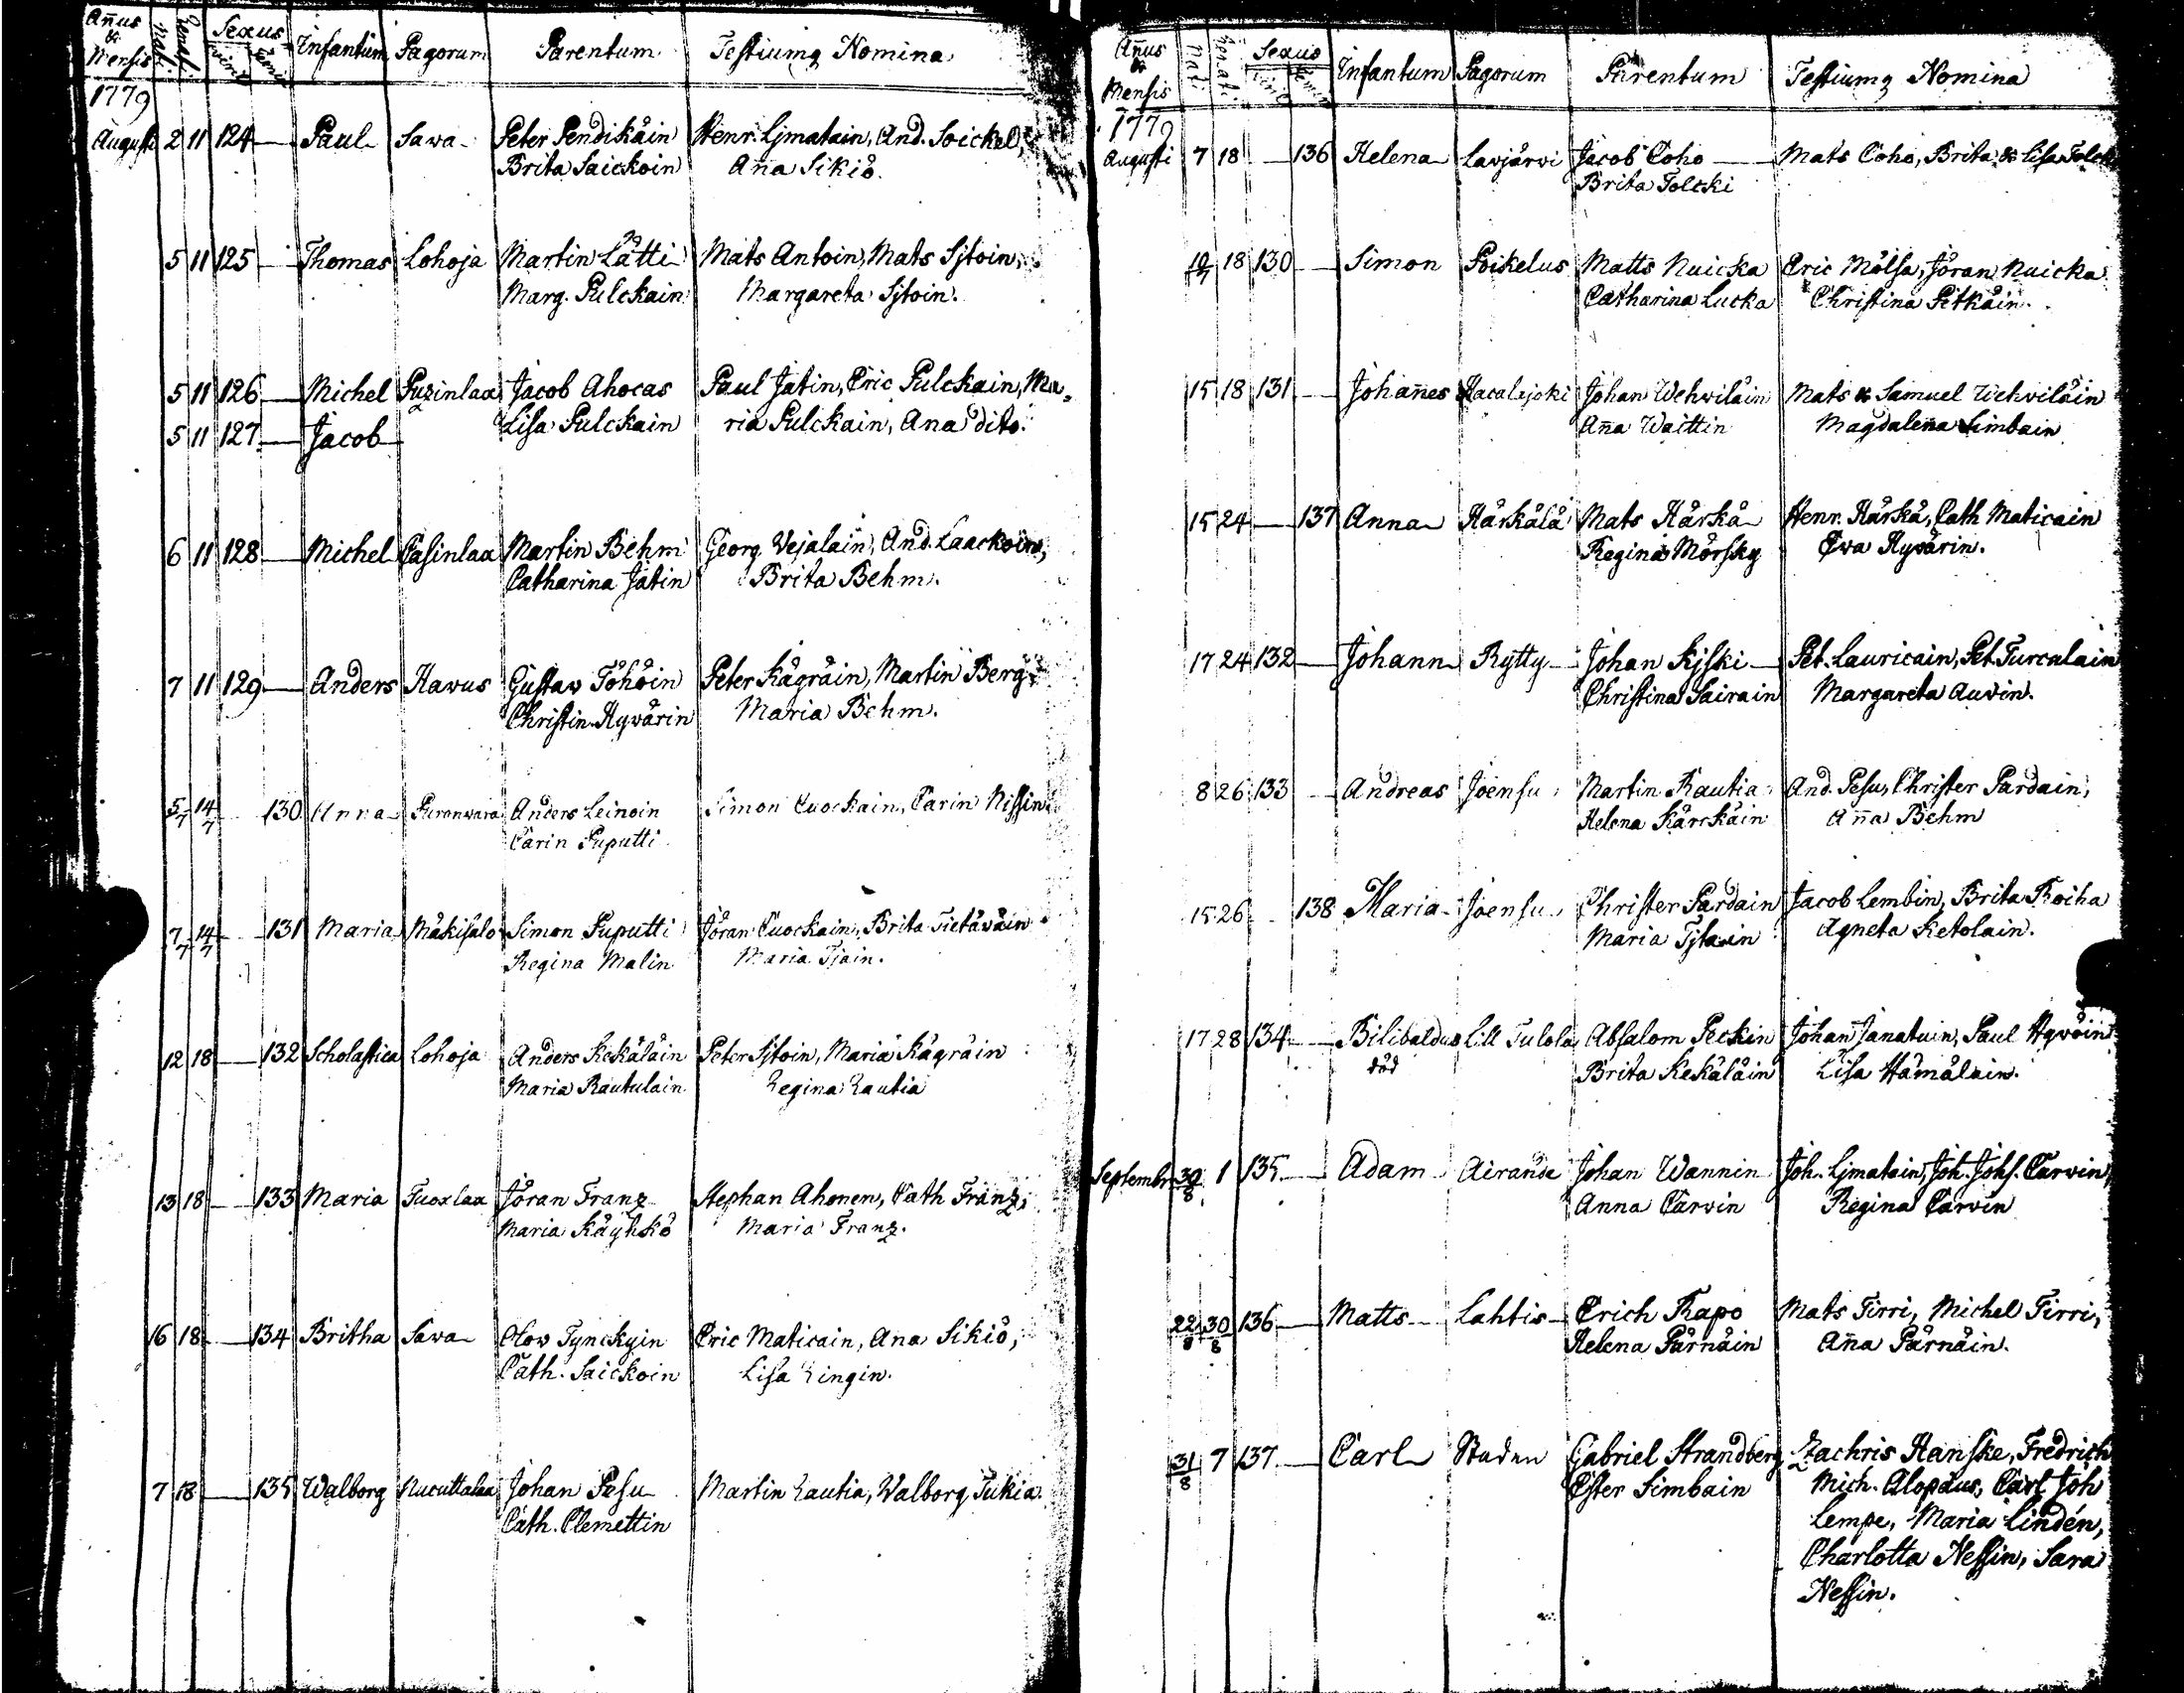 Añus & Mensis Nati. Renati. Sexus Infantum Pagorum Parentum Testiumq Nomina
1779
Augusti 2 11 124 — Paul Sawa Peter Pendikäin Henr. Ljmatain, And. Soickel,
Brita Saickoin Aña Sikiö.
5 11 125 — Thomas Lohoja Martin Lätti Mats Antoin, Mats Sjtoin,
Marg. Pulckain Margareta Sjtoin.
5 11 126 — Michel Puzinlax Jacob Ahocas Paul Jatin, Eric Pulckain, Ma-
5 11 127 — Jacob Lisa Pulckain ria Pulckain, Ana dito.
6 11 128 — Michel Casinlax Martin Behm Georg Wejalain, And. Laackoin,
Catharina Jatin Brita Behm.
7 11 129 — Anders Hawus Gustav Töhöin Peter Kägräin, Martin Berg
Christin Hyvärin Maria Behm.
5/7 14/7 130 Anna Puronwara Anders Leinoin Simon Cuockain, Carin Nissin
Carin Puputti
7/7 14/7 131 Maria Mäkisalo Simon Puputti Jöran Cuockain, Brita Tietäväin
Regina Malin Maria Tjain.
12 18 — 132 Scholastica Lohoja Anders Kekäläin Peter Sjtoin, Maria Kägräin
Maria Rautulain Regina Rautia
13 18 — 133 Maria Tuoxlax Jöran Franz Stephan Ahonen, Cath Franz,
Maria Käyhkö Maria Franz.
16 18 — 134 Britha Sawa Olov Tynckyin Eric Maticain, Ana Sikiö,
Cath. Saickoin Lisa Ringin.
7 18 — 135 Walborg Nucuttalax Johan Pesu Martin Rautia, Walborg Tukia.
Cath. Clemettin
Añus & Mensis Nati Renati Sexus Infantum Pagorum Parentum Testiumq Nomina
1779
Augusti 7 18 — 136 Helena Lavjärvi Jacob Coho Mats Coho, Brita & Lisa Tolcki
Brita Tolcki
19/7 18 130 — Simon Poikelus Matts Nuicka Eric Mölsa, Jöran Nuicka
Catharina Lucka Christina Pitkäin.
15 18 131 — Johañes Hacalajoki Johan Wehviläin Mats & Samuel Wehviläin
Aña Waittin Magdalena Simbain
15 24 — 137 Anna Härkälä Mats Härkä Henr. Härkä, Cath Maticain
Regina Mörsky Ewa Hyvärin.
17 24 132 — Johann Rytty Johan Kjski Pet. Lauricain, Pet. Turculain
Christina Sairain Margareta Auvin.
8 26 133 Andreas Joensu Martin Rautia And. Pesu, Christer Pardain,
Helena Kärckäin Aña Behm
15 26 138 Maria Joensu Christer Pardain Jacob Lembin, Brita Roiha
Maria Tjtain Agneta Ketolain.
17 28 134 — Bilibaldus Lill Tulola Absalom Peckin Johan Janatuin, Paul Hyvöin
död Brita Kekäläin Lisa Hämäläin.
Septembr 30/8 1 135 — Adam Airanda Johan Wannin Joh. Ljmatain, Joh. Johs. Carvin,
Anna Carvin Regina Carvin
22/8 30/8 136 — Matts Lahtis Erich Rapo Mats Tirri, Michel Tirri,
Helena Pärnäin Aña Pärnäin.
31/8 7 137 — Carl Staden Gabriel Strandberg Zachris Hanske, Fredrich
Ester Simbain Mich. Alopæus, Carl Joh
Lempe, Maria Lindén,
Charlotta Nessin, Sara
Nessin.